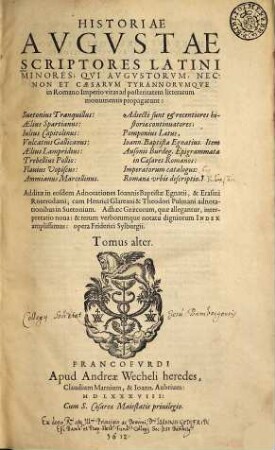 HISTORIAE
AVGVSTAE
SCRIPTORES LATINI
MINORES: QVI AVGVSTORVM, NEC-
NON ET CÆSARVM TYRANNORVMQVE
in Romano Imperio vitas ad posteritatem litterarum
monumentis propagarunt:
Suetonius Tranquillus:
Ælius Spartianus:
Iulius Capitolinus:
Vulcatius Gallicanus:
Ælius Lampridius:
Trebellius Pollio:
Flauius Vopiscus:
Ammianus Marcellinus.
Adiecti sunt & recentiores hi-
storiæ continuatores:
Pomponius Lætus,
Ioann. Baptista Egnatius. Item
Ausonii Burdeg. Epigrammata
in Cæsares Romanos:
Imperatorum catalogus:
Romanæ vrbis descriptio.
Additæ in eosdem Adnotationes Ioannis Baptistæ Egnatii, & Erasmi
Roterodami, cum Henrici Glareani & Theodori Pulmani adnota-
tionibus in Suetonium. Ad hæc Græcorum, quæ allegantur, inter-
pretatio noua: & rerum verborumque notatu digniorum INDEX
amplissimus: opera Friderici Sylburgii.
Tomus alter.
FRANCOFVRDI
Apud Andreæ Wecheli heredes,
Claudium Marnium, & Ioann. Aubrium:
MDLXXXVIII.
Cum S. Cæsareæ Maiestatis priuilegio.